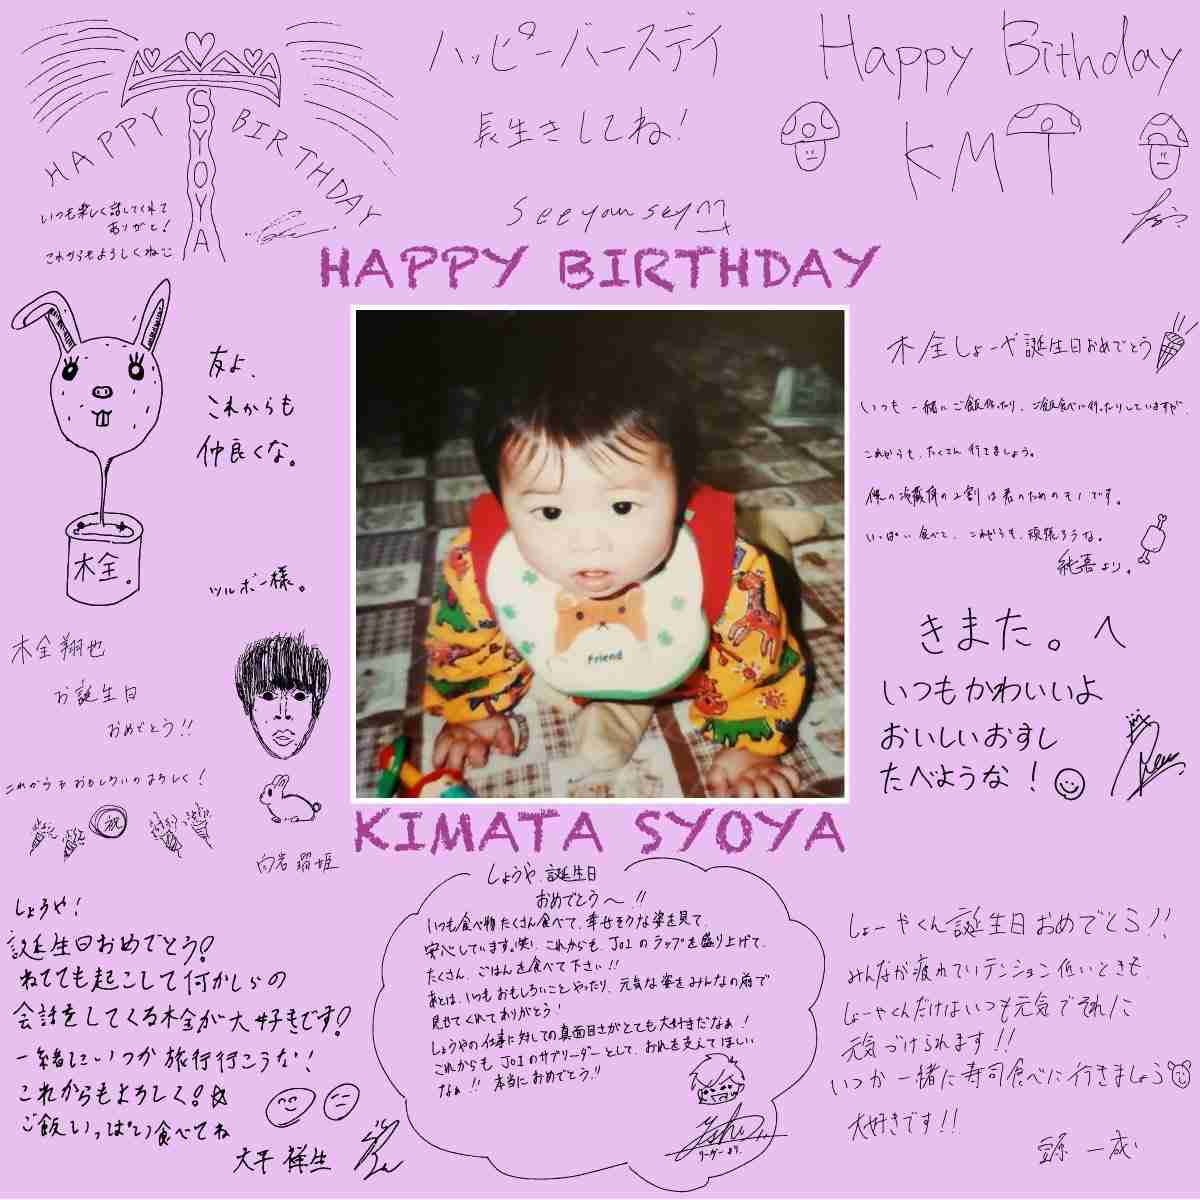 HAPPY BIRTHDAY
SYOYA
いつも楽しく話してくれて
ありがと！
これからもよろしくね
ハッピーバースデイ
長生きしてね！
Happy Birthday
KMT
HAPPY BIRTHDAY
友よ、
これからも
仲良くな。
木全。
ツルボー様。
木全しょーや誕生日おめでとう
いつも一緒にご飯作ったり、ご飯食べに行ったりしていますが、
これからも、たくさん行きましょう。
俺の冷蔵庫の2割は君のためのモノです。
いっぱい食べて、これからも、頑張ろうな。
純喜より。
Friend
きまた。へ
いつもかわいいよ
おいしいおすし
たべような！
木全翔也
お誕生日
おめでとう!!
これからもおもしろいのよろしく！
祝
KIMATA SYOYA
しょうや！
誕生日おめでとう！
ねてても起こして何かしらの
会話をしてくる木全が大好きです！
一緒にいつか旅行行こうな！
これからもよろしく！
ご飯いっぱい食べてね
大平祥生
しょうや、誕生日
おめでとう〜!!
いつも食べ物たくさん食べて、幸せそうな姿を見て、
安心しています。(笑) これからも、JO1のラップを盛り上げて、
たくさん、ごはんを食べて下さい!!
あとは、いつもおもしろいことやったり、元気な姿をみんなの前で
見せてくれてありがとう！
しょうやの仕事に対しての真面目さがとても大好きだなぁ！
これからも、JO1のサブリーダーとして、おれを支えてほしい
なぁ!! 本当におめでとう!!
リーダーより
しょーやくん誕生日おめでとう!!
みんなが疲れていてテンション低いときも、
しょーやくんだけはいつも元気でそれに
元気づけられます!!
いつか一緒に寿司食べに行きましょう
大好きです!!